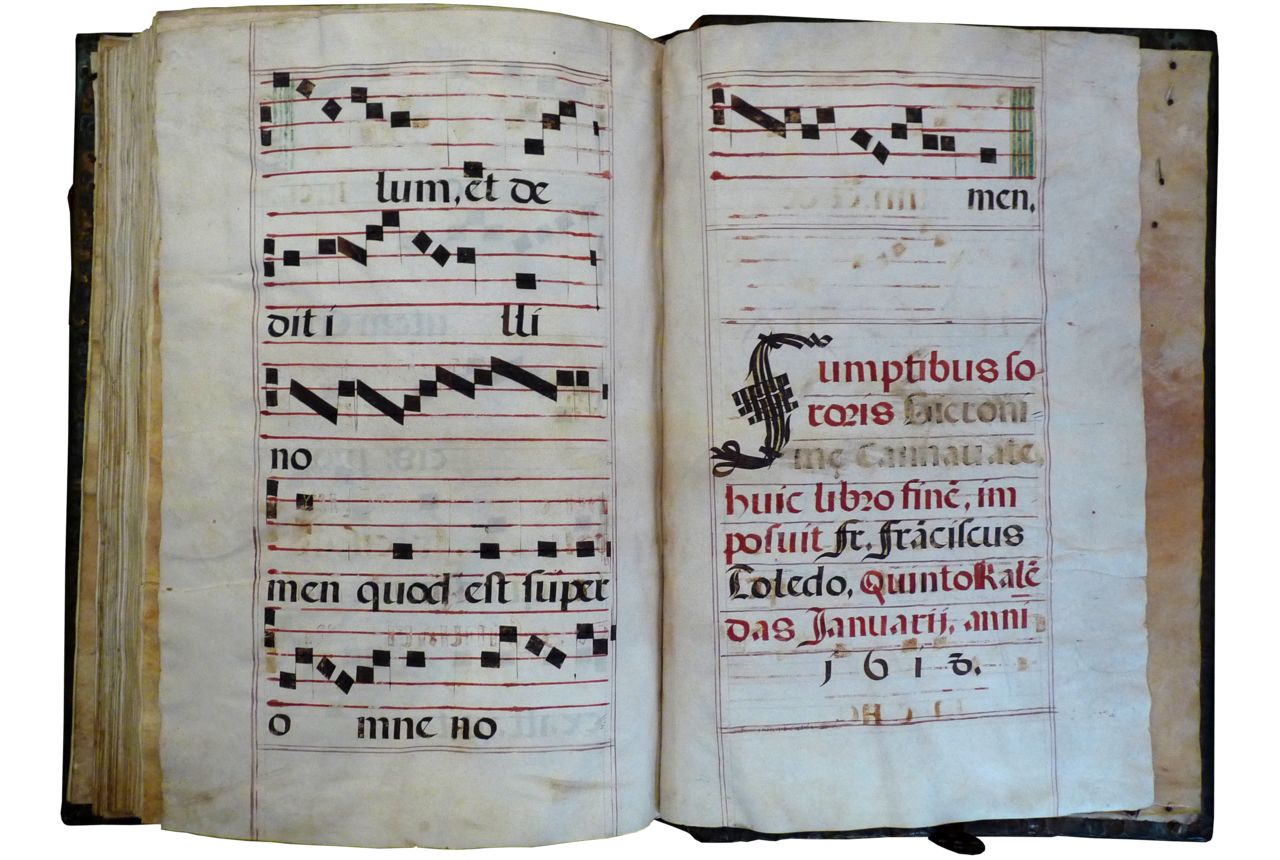 lum, et de
dit i lli
no
men quod est super
o mne no
men.
Sumptibus so
roris
huic libro finē, im
posuit fr. frāciscus
Toledo, Quinto Kalē
das Januarij, anni